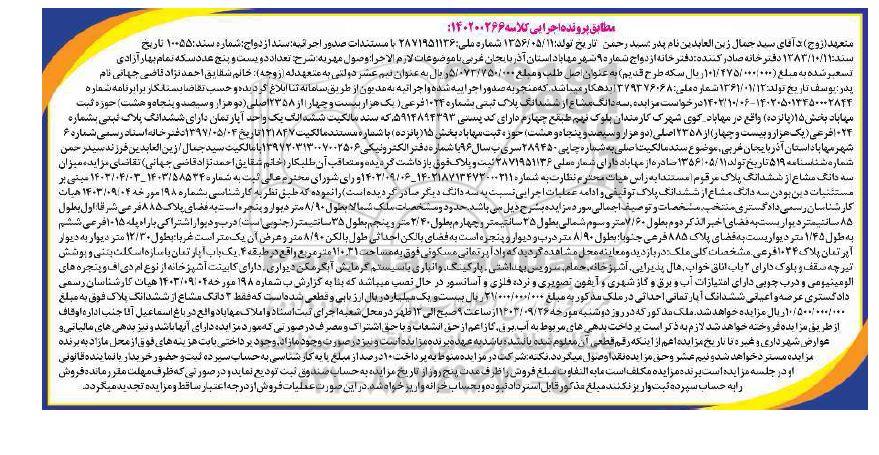 مطابق پرونده اجرایی کلاسه ۱۴۰۲۰۰۲۶۶:
متعهد(زوج): آقای سید جمال زین العابدین نام پدر: سید رحمن تاریخ تولد: ۱۳۵۶/۰۵/۱۱ شماره ملی: ۲۸۷۱۹۵۱۱۳۶ با مستندات صدور اجرائیه: سند ازدواج: شماره سند: ۱۰۰۵۵ تاریخ
سند: ۱۳۸۳/۱۰/۱۱ دفترخانه صادر کننده: دفترخانه ازدواج شماره ۹ شهر مهاباد استان آذربایجان غربی با موضوعات لازم الاجرا: وصول مهریه: شرح: تعداد دویست و پنج عدد سکه تمام بهار آزادی
تسعیر شده به مبلغ (۱۰۱/۴۷۵/۰۰۰/۰۰۰ ریال سکه طرح قدیم) به عنوان اصل طلب و مبلغ ۵/۰۷۳/۷۵۰/۰۰۰ ریال به عنوان نیم عشر دولتی به متعهدله (زوجه): خانم شقایق احمدنژاد قاضی جهانی نام
پدر: یوسف تاریخ تولد: ۱۳۶۱/۰۱/۱۲ شماره ملی: ۳۷۹۳۷۶۰۶۸ بدهکار میباشد. که منجر به صدور اجراییه شده واجرائیه به مدیون از طریق سامانه ثنا ابلاغ گردیده و حسب تقاضا بستانکار برابر نامه شماره
۱۴۰۲/۱۰/۰۶-۱۴۰۲۰۵۰۱۳۴۵۰۰۰۲۸۴۴ درخواست مزایده سه دانگ مشاع از ششدانگ پلاک ثبتی بشماره ۱۰۲۴ فرعی (یک هزار بیست و چهار) از ۲۳۵۸ اصلی (دو هزار و سیصد و پنجاه و هشت) حوزه ثبت
مهاباد بخش ۱۵ (پانزده) واقع در مهاباد، کوی شهرک کارمندان بلوک نهم طبقع چهارم دارای کد پستی ۵۹۱۴۸۹۴۳۹۳ که سند مالکیت ششدانگ یک واحد آپارتمان دارای ششدانگ پلاک ثبتی بشماره
۱۰۲۴ فرعی (یک هزار و بیست و چهار) از ۲۳۵۸ اصلی (دو هزار و سیصد و پنجاه و هشت) حوزه ثبت مهاباد بخش ۱۵ (پانزده) با شماره مستند مالکیت ۱۲۱۸۴۷ تاریخ ۱۳۹۷/۰۵/۰۴ دفترخانه اسناد رسمی شماره ۶
شهر مهاباد استان آذربایجان غربی، موضوع سند مالکیت اصلی به شماره چاپی ۲۸۹۴۵۰ سری ب سال ۹۶ با شماره دفتر الکترونیکی ۱۳۹۷۲۰۳۱۳۰۰۷۰۰۲۵۰۶ با مالکیت سید جمال زین العابدین فرزند سید رحمن
شماره شناسنامه ۵۱۹ تاریخ تولد ۱۳۵۶/۰۵/۱۱ صادره از مهاباد دارای شماره ملی ۲۸۷۱۹۵۱۱۳۶ ثبت و پلاک فوق بازداشت گردیده و متعاقب آن طلبکار (خانم شقایق احمدنژاد قاضی جهانی) تقاضای مزایده میزان
سه دانگ مشاع از ششدانگ پلاک مرقوم مستندا به رای هیات محترم نظارت به شماره ۱۴۰۲۱۸۷۱۳۴۷۳۰۰۰۲۱۱_۱۴۰۲/۰۹/۰۶ و رای شورای محترم عالی ثبت به شماره ۱۴۰۳/۵۸۵۳۴_۱۴۰۳/۰۴/۰۳ مبنی بر
مستثنیات دین بودن سه دانگ مشاع از ششدانگ پلاک توقیفی و ادامه عملیات اجرایی نسبت به سه دانگ دیگر صادر گردیده است) را نموده که طبق نظر به کارشناسی بشماره ۱۹۸ مورخه ۱۴۰۳/۰۹/۰۴ هیات
کارشناسان رسمی دادگستری منتخب، مشخصات و توصیف اجمالی مورد مزایده بشرح ذیل می باشد. حدود و مشخصات ملک شمالا: بطول ۸/۹۰ متر دیوار و پنجره است به فضای پلاک ۸۸۵ فرعی شرقا: اول بطول
۸۵ سانتیمتر دیواریست بفضای اخیر الذکر دوم بطول ۷/۶۰ متر و سوم شمالی بطول ۳۵ سانتیمتر و چهارم بطول ۲/۴۰ متر و پنجم بطول ۳۵ سانتیمتر (جنوبی است) درب و دیوار اشتراکی با راه پله ۱۰۱۵ فرعی ششم
به طول ۱/۴۵ متر دیواریست به فضای پلاک ۸۸۵ فرعی جنوبا: بطول ۸/۹۰ متر درب و دیوار و پنجره است به فضای بالکن احداثی طول بالکن ۸/۹۰ متر و عرض آن یک متر است غربا: بطول ۱۲/۳۰ متر دیوار به دیوار
آپرتمان پلاک ۱۰۳۴ فرعی. مشخصات کلی ملک: در بازدید و معاینه محل مشاهده گردید که واد آپرتمانی مسکونی فوق به مساحت ۱۱۰.۳۱ متر مربع واقع در طبقه ۴، یک باب آپارتمان با سازه اسکلت بتنی و پوشش
تیرچه سقف و بلوک دارای ۲ باب اتاق خواب، هال پذیرایی، آشپزخانه، حمام، سرویس بهداشتی، پارکینگ و انباری با سیستم گرمایش آبگرمکن دیواری، دارای کابینت آشپزخانه از نوع ام دی اف و پنجره های
الومینیومی و درب چوبی دارای امتیازات آب و برق و گاز شهری و آیفون تصویری و نرده فلزی و آسانسور در حال نصب میباشد که بنا به گزارش ب شماره ۱۹۸ مورخه ۱۴۰۳/۰۹/۰۴ هیات کارشناسان رسمی
دادگستری عرصه و اعیانی ششدانگ آپارتمانی احداثی در ملک مذکور به مبلغ ۲۱/۰۰۰/۰۰۰/۰۰۰ ریال بیست و یک میلیارد ریال ارزیابی و قطعی شده است که فقط ۳ دانگ مشاع از ششدانگ پلاک فوق به مبلغ
۱۰/۵۰۰/۰۰۰/۰۰۰ ریال مزایده خواهد شد. ملک مذکور که در روز دوشنبه مورخه ۱۴۰۳/۰۹/۲۶ از ساعت ۹ صبح الی ۱۲ ظهر در محل شعبه اجرای ثبت اسناد و املاک مهاباد واقع در باغ اسماعیل آقا جنب اداره اوقاف
از طریق مزایده فروخته خواهد شد. لازم به ذکر است پرداخت بدهی های مربوط به آب، برق، گاز اعم از حق انشعاب و یا حق اشتراک و مصرف در صورتی که مورد مزایده دارای آنها باشد و نیز بدهی های مالیاتی و
عوارض شهرداری و غیره تا تاریخ مزایده اعم از اینکه رقم قطعی آن معلوم شده یا نشده باشد به عهده برنده مزایده است و نیز در صورت وجود مازاد، وجوه پرداختی بابت هزینه های فوق از محل مازاد به برنده
مزایده مسترد خواهد شد و نیم عشر و حق مزایده نقدا وصول میگردد. نکته: شرکت در مزایده منوط به پرداخت ۱۰ درصد از مبلغ پایه کارشناسی به حساب سپرده ثبت و حضور خریدار یا نماینده قانونی
او در جلسه مزایده است برنده مزایده مکلف است مابه التفاوت مبلغ فروش را ظرف مدت پنج روز از تاریخ مزایده به حساب صندوق ثبت تودیع نماید و در صورتی که ظرف مهلت مقرر مانده فروش
را به حساب سپرده ثبت واریز نکنند مبلغ مذکور قابل استرداد نبوده و بحساب خزانه واریز خواهد شد. در این صورت عملیات فروش از درجه اعتبار ساقط و مزایده تجدید میگردد.